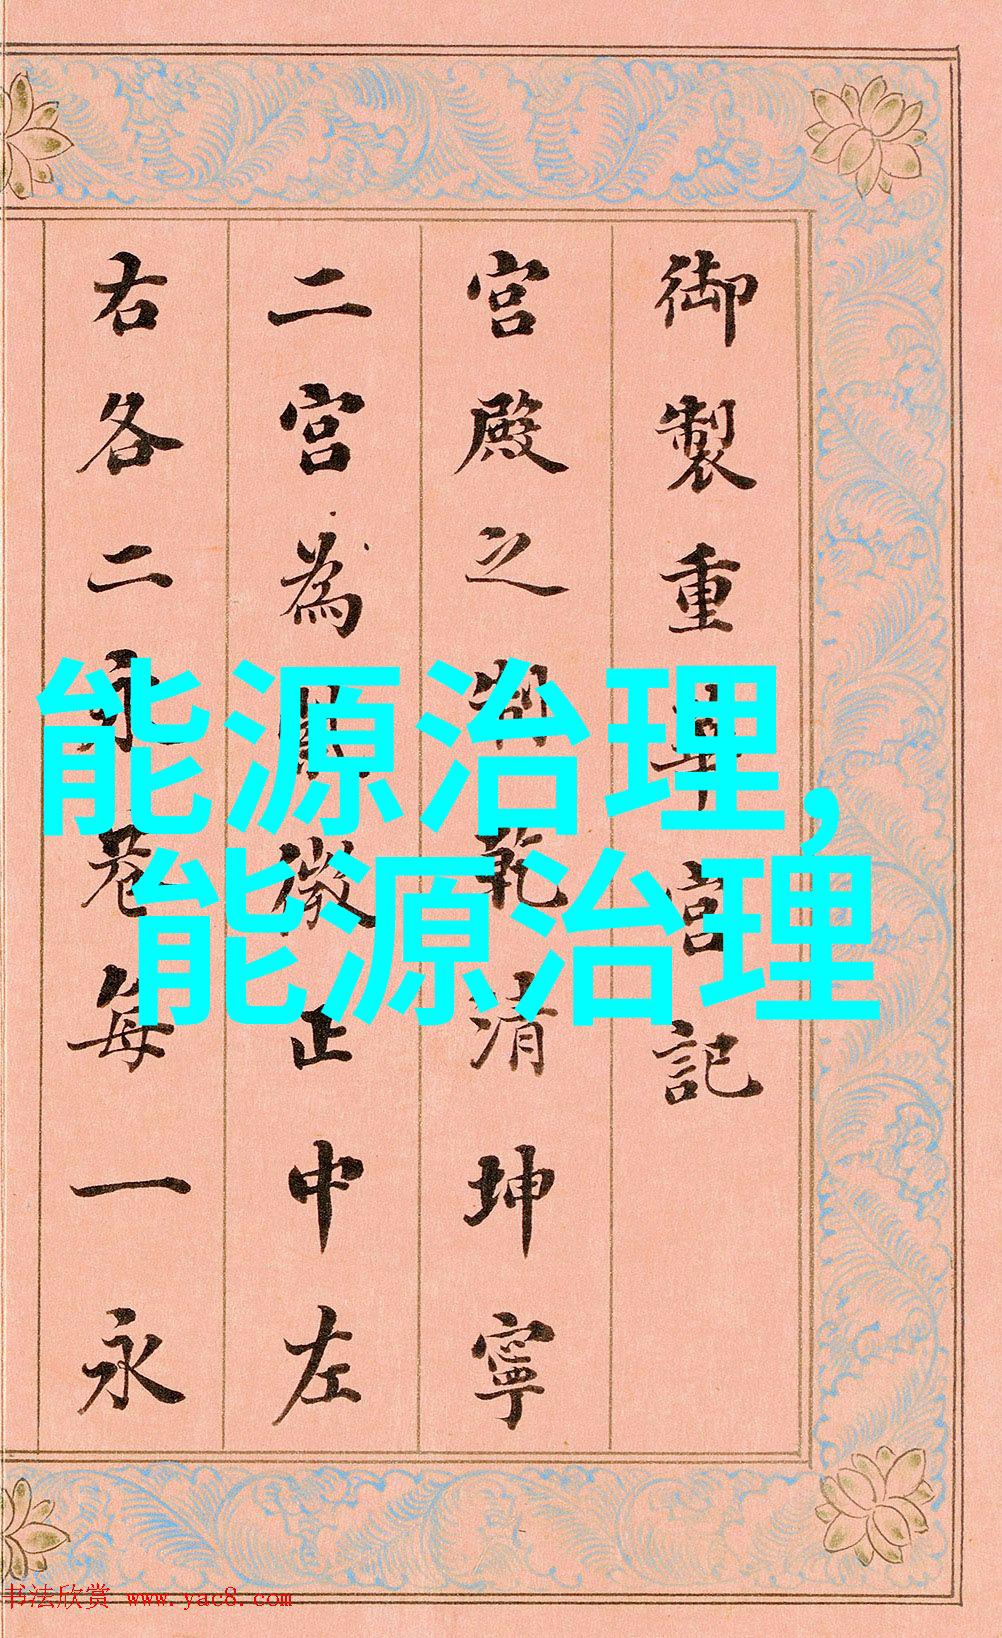 御製重華宮記
宮殿之乾清坤寧
二宮為紫微正中左
右各二永巷每一永
能源治理,
能源治理
书法欣赏 www.yac8.com